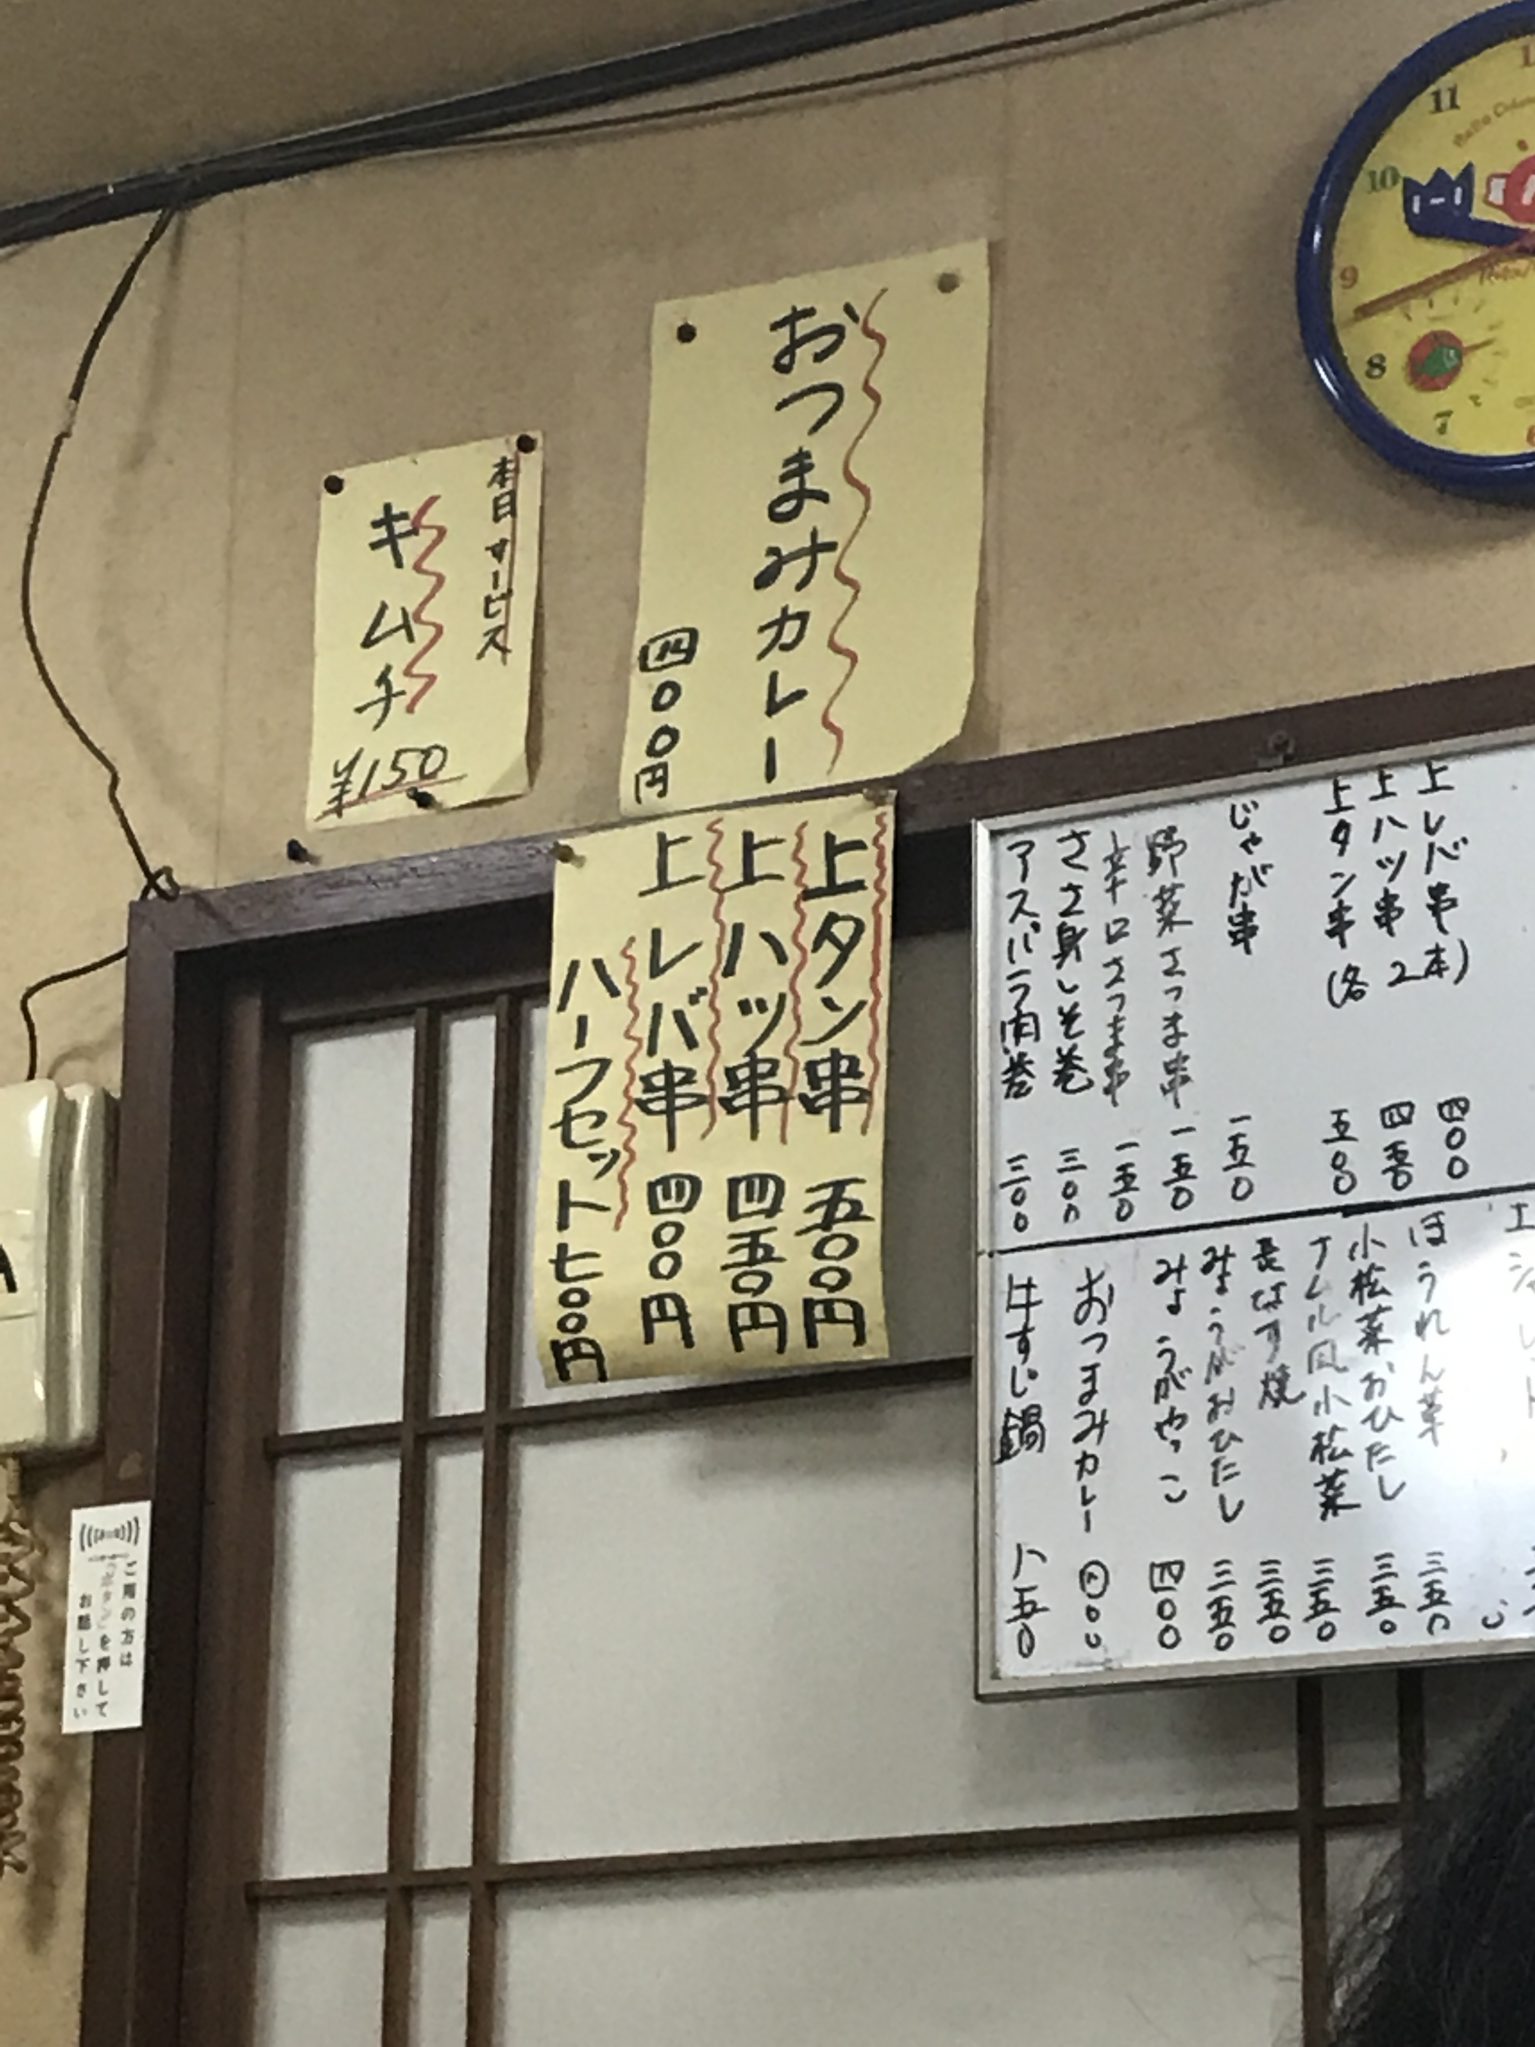 おつまみカレー
四〇〇円
本日サービス
キムチ
¥150
上タン串 五〇〇円
上ハツ串 四五〇円
上レバ串 四〇〇円
ハーフセット 七〇〇円
上レバ串 四〇〇
上ハツ串 四五〇
上タン串 五〇〇
(各2本)
じゃが串 一五〇
野菜さつま串 一五〇
辛口さつま串 一五〇
ささ身しそ巻 三〇〇
アスパラ肉巻 三〇〇
ほうれん菜 三五〇
小松菜おひたし 三五〇
ナムル風小松菜 三五〇
長なす焼 三五〇
みょうがおひたし 三五〇
みょうがやっこ 四〇〇
おつまみカレー 四〇〇
牛すじ鍋 八五〇
11
10
9
8
7
ご用の方は
「ボタン」を押して
お話し下さい